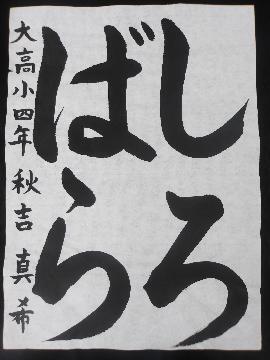 しろ
ばら
大高小四年 秋吉真希